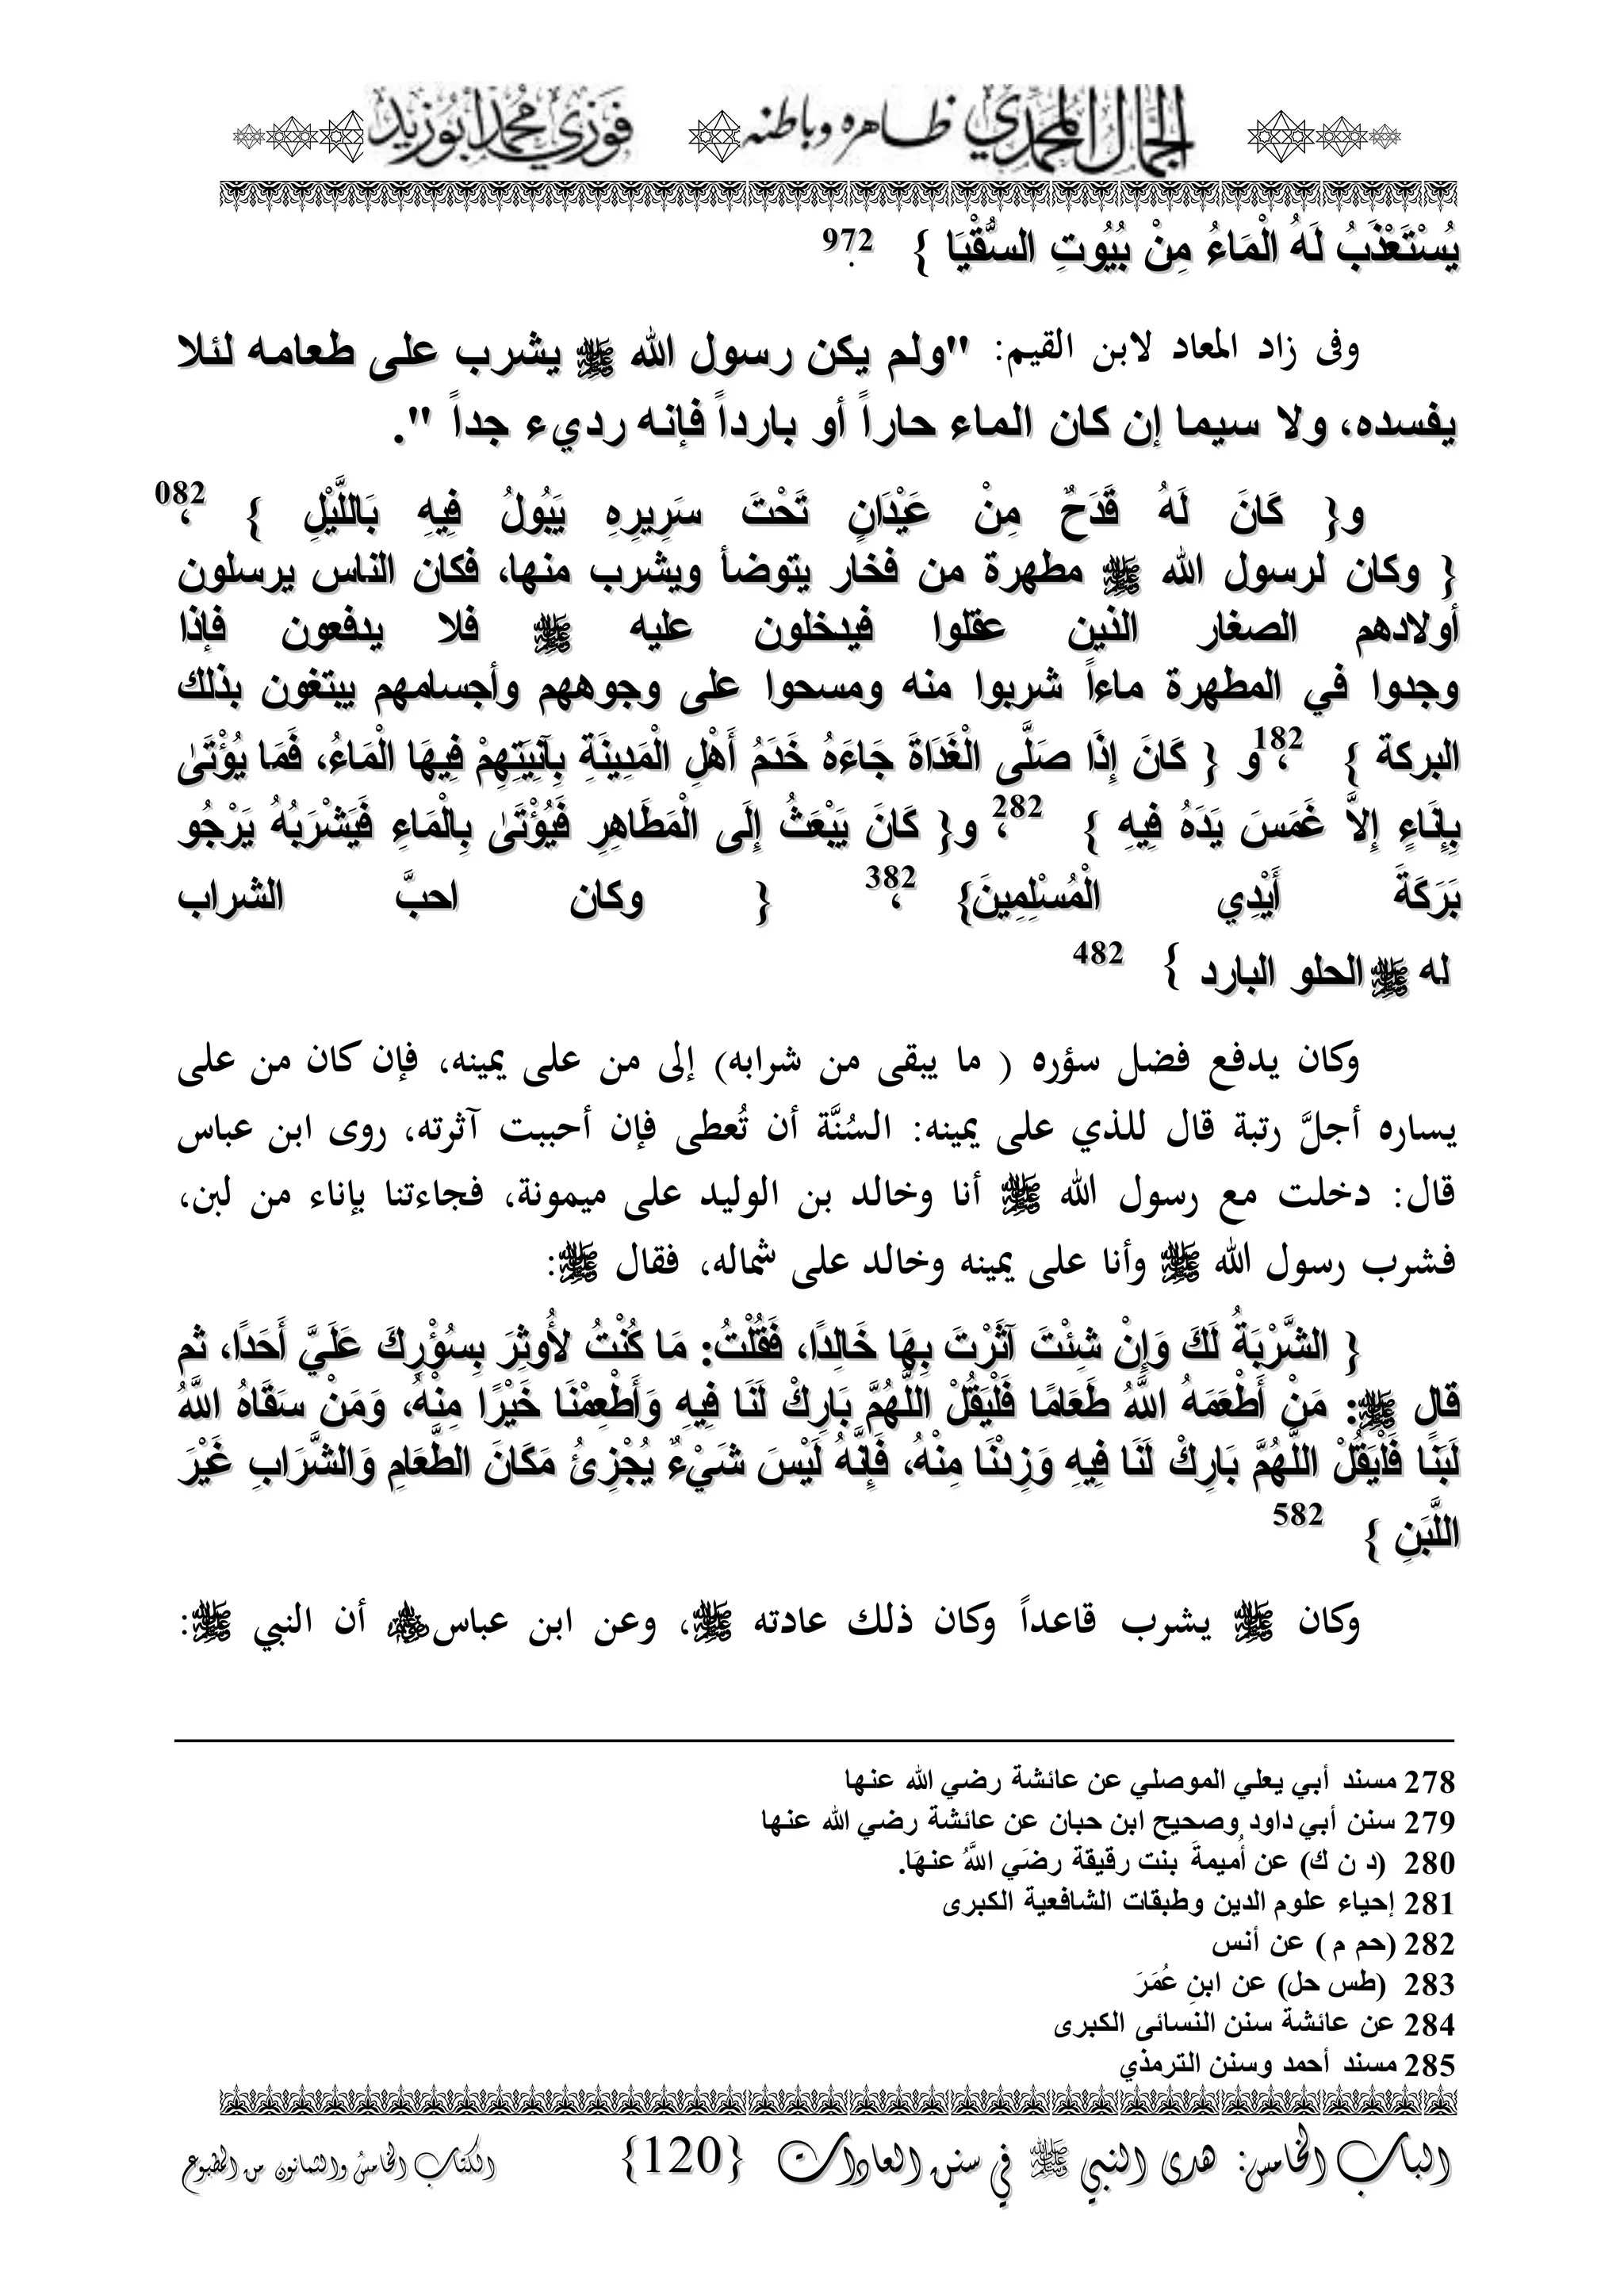 الجمال المحمدي ظاهره وباطنه فوزي محمد أبوزيد
يُسْتَعْذَبُ لَهُ الْمَاءُ مِنْ بُيُوتِ السُّقْيَا } 972.
وفى زاد المعاد لابن القيم: "ولم يكن رسول الله ﷺ يشرب على طعامه لئلا
يفسده، ولا سيما إن كان الماء حاراً أو بارداً فإنه رديء جداً ".
و{ كَانَ لَهُ قَدَحٌ مِنْ عَيْدَانٍ تَحْتَ سَرِيرِهِ يَبُولُ فِيهِ بَاللَّيْلِ } 082،
{ وكان لرسول الله ﷺ مطهرة من فخار يتوضأ ويشرب منها، فكان الناس يرسلون
أولادهم الصغار الذين عقلوا فيدخلون عليه ﷺ فلا يدفعون فإذا
وجدوا في المطهرة ماءاً شربوا منه ومسحوا على وجوههم وأجسامهم يبتغون بذلك
البركة } 182، و { كَانَ إِذَا صَلَّى الْغَدَاةَ جَاءَهُ خَدَمُ أَهْلِ الْمَدِينَةِ بِآنِيَتِهِمْ فِيهَا الْمَاءُ، فَمَا يُؤْتَىٰ
بِإِنَاءٍ إِلاَّ غَمَسَ يَدَهُ فِيهِ } 282، و{ كَانَ يَبْعَثُ إِلَى الْمَطَاهِرِ فَيُؤْتَىٰ بِالْمَاءِ فَيَشْرَبُهُ يَرْجُو
بَرَكَةَ أَيْدِي الْمُسْلِمِينَ} 382، { وكان احبَّ الشراب
له ﷺ الحلو البارد } 482
وكان يدفع فضل سؤره ( ما يبقى من شرابه) إلى من على يمينه، فإن كان من على
يساره أجلَّ رتبة قال للذي على يمينه: السُنَّة أن تُعطى فإن أحببت آثرته، روى ابن عباس
قال: دخلت مع رسول الله ﷺ أنا وخالد بن الوليد على ميمونة، فجاءتنا بإناء من لبن،
فشرب رسول الله ﷺ وأنا على يمينه وخالد على شماله، فقال ﷺ:
{ الشَّرْبَةُ لَكَ وَإِنْ شِئْتَ آثَرْتَ بِهَا خَالِدًا، فَقُلْتُ: مَا كُنْتُ لأُوثِرَ بِسُؤْرِكَ عَلَيَّ أَحَدًا، ثم
قال ﷺ: مَنْ أَطْعَمَهُ اللَّهُ طَعَامًا فَلْيَقُلْ اللَّهُمَّ بَارِكْ لَنَا فِيهِ وَأَطْعِمْنَا خَيْرًا مِنْهُ، وَمَنْ سَقَاهُ اللَّهُ
لَبَنًا فَلْيَقُلْ اللَّهُمَّ بَارِكْ لَنَا فِيهِ وَزِدْنَا مِنْهُ، فَإِنَّهُ لَيْسَ شَيْءٌ يُجْزِئُ مَكَانَ الطَّعَامِ وَالشَّرَابِ غَيْرَ
اللَّبَنِ } 582
وكان ﷺ يشرب قاعداً وكان ذلك عادته ﷺ، وعن ابن عباس أن النبي ﷺ:
278 مسند أبي يعلي الموصلي عن عائشة رضي الله عنها
279 سنن أبي داود وصحيح ابن حبان عن عائشة رضي الله عنها
280 (د ن ك) عن أُميمةَ بنت رقيقة رضَي اللَّهُ عنهَا.
281 إحياء علوم الدين وطبقات الشافعية الكبرى
282 (حم م ) عن أنس
283 (طس حل) عن ابنِ عُمَرَ
284 عن عائشة سنن النسائى الكبرى
285 مسند أحمد وسنن الترمذي
الباب الخامس: هدى النبي ﷺ في سنن العادات {120} الكتاب الخامس والثمانون من المطبوع